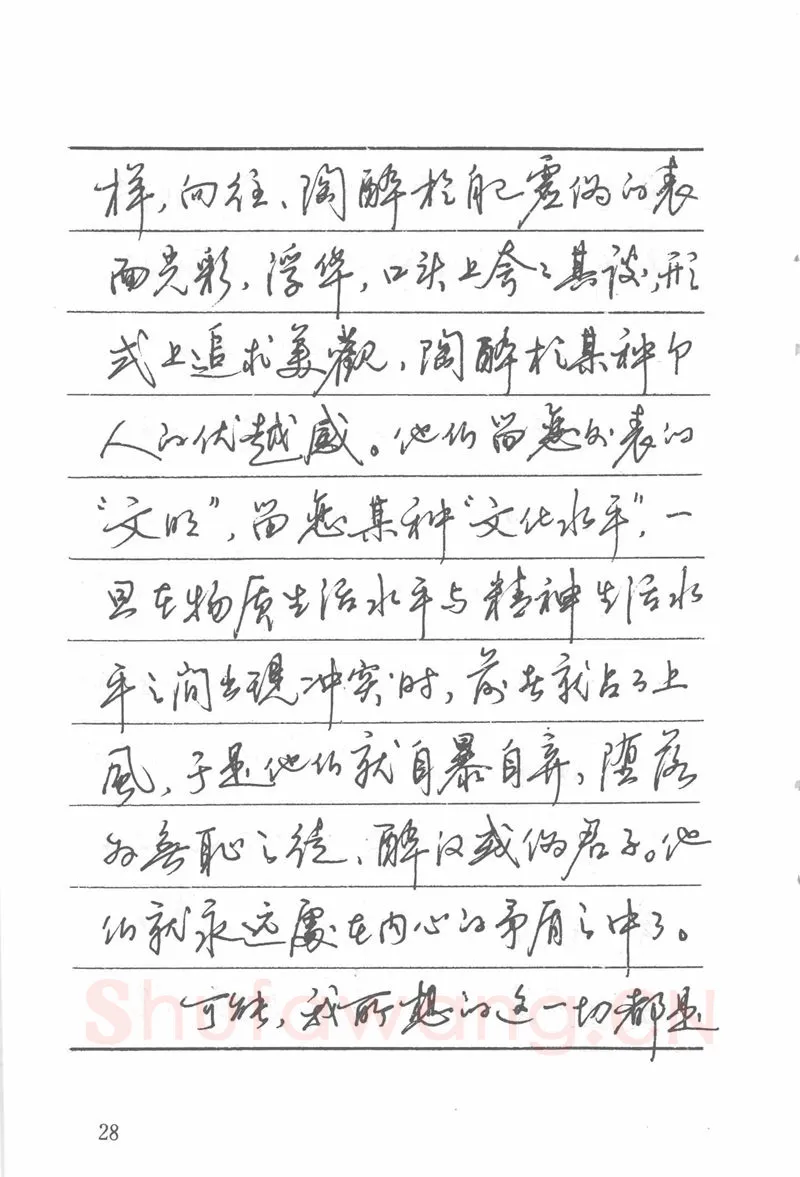 样，向往、陶醉於那虚伪的表
面光彩，浮华，口头上夸夸其谈，形
式上追求美觀，陶醉於某种个
人的优越感。他们留恋外表的
“文明”，留恋某种“文化水平”，一
旦在物质生活水平与精神生活水
平之间出现冲突时，前者就占了上
風，于是他们就自暴自弃，堕落
为無耻之徒、醉汉或伪君子。他
们就永远處在内心的矛盾之中了。
可能，我所想的这一切都是
Shufawang.CN
28